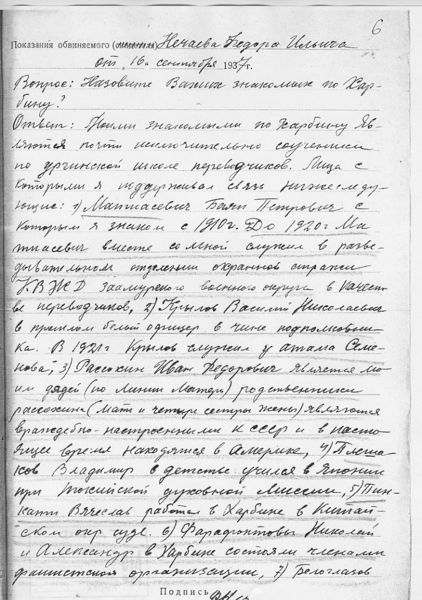 6
Показания обвиняемого (свидетеля) Нечаева Федора Ильича
от „16" сентября 1937 г.
Вопрос: Назовите Ваших знакомых по Хар-
бину?
Ответ: Моими знакомыми по Харбину яв-
ляются почти исключительно соученики
по ургинской школе переводчиков. Лица с
которыми я поддерживал связь нижеследу-
ющие: 1) Матиасевич Баян Петрович с
которым я знаком с 1910 г. До 1920 г Ма-
тиасевич вместе со мной служил в разве-
дывательном отделении охранной стражи
КВЖД Заамурского военного округа в качест-
ве переводчиков, 2) Крылов Василий Николаевич
в прошлом белый офицер в чине подполковни-
ка. В 1921 г Крылов служил у атамана Семе-
нова, 3) Рассохин Иван Федорович является мо-
им дядей (по линии матери) родственники
рассохина (мать и четыре сестры жены) являются
враждебно-настроенными к СССР и в насто-
ящее время находятся в Америке, 4) Плеша-
ков Владимир в детстве учился в Японии
при токийской духовной миссии, 5)
Вячеслав работал в Харбине в Китай-
ском окр суде. 6) Фарафонтовы Николай
и Александр в Харбине состояли членами
фашистской организации, 7) Белоглазов
Подпись